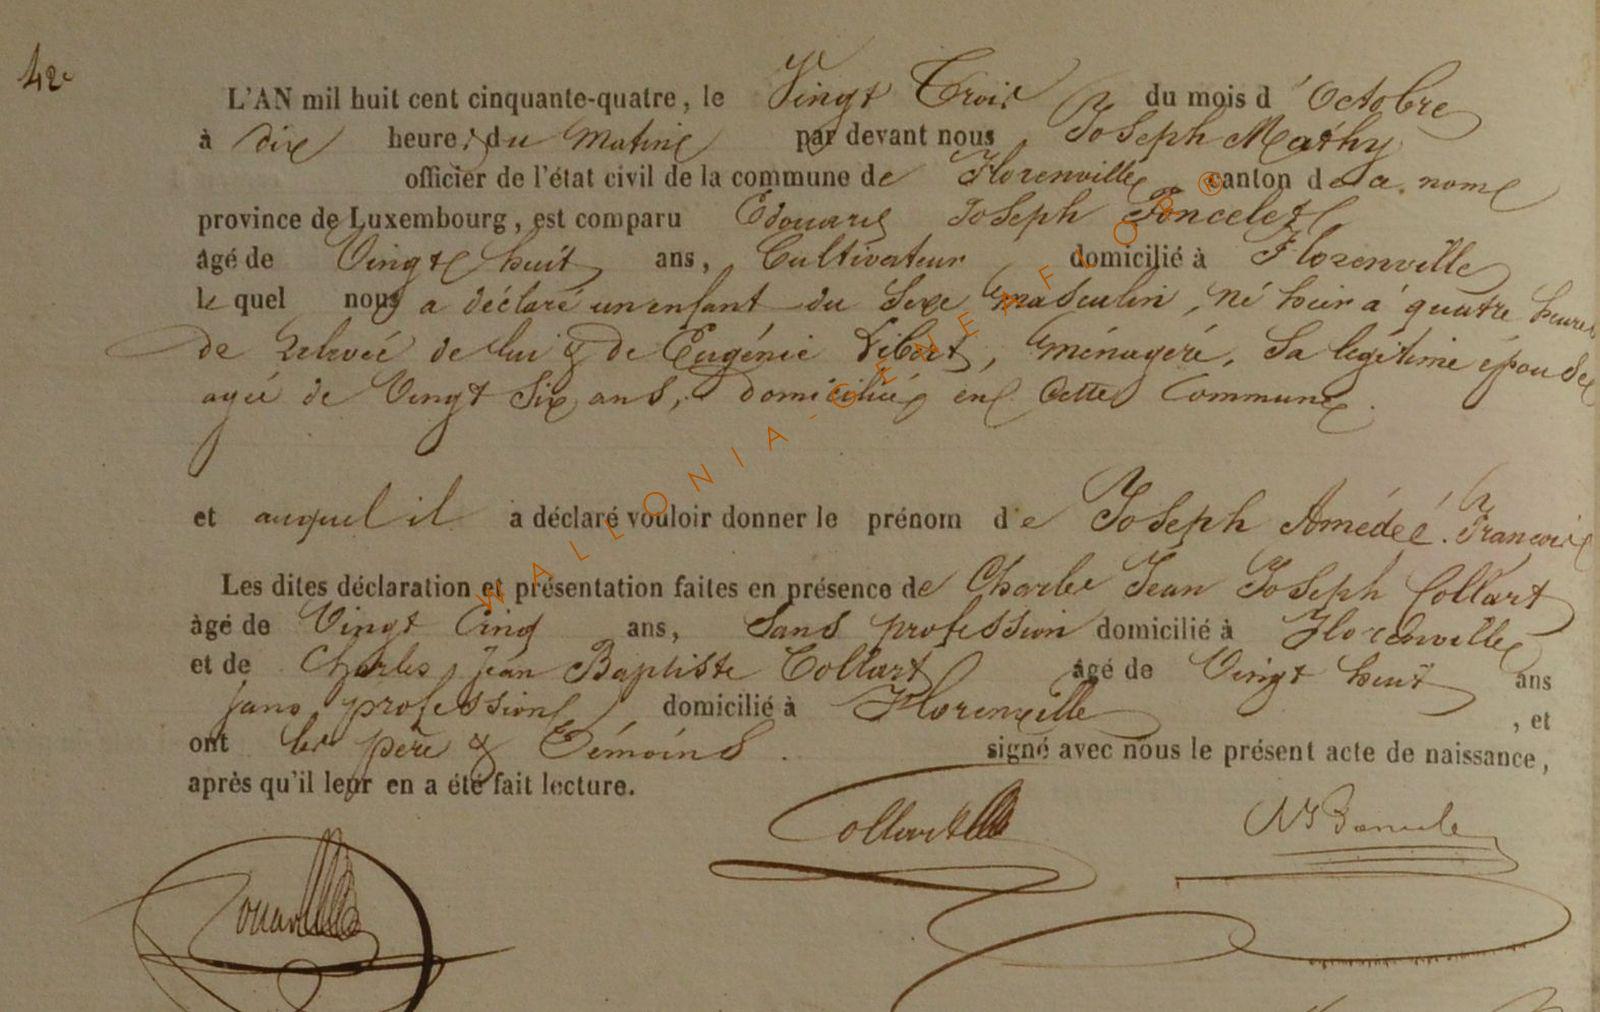 42e
L'AN mil huit cent cinquante-quatre, le Vingt Trois du mois d'Octobre
à dix heures du Matin par devant nous Joseph Mathy
officier de l'état civil de la commune de Florenville canton de ce nom
province de Luxembourg, est comparu Edouard Joseph Poncelet
âgé de Vingt huit ans, Cultivateur domicilié à Florenville
le quel nous a déclaré un enfant du Sexe masculin, né hier à quatre heures
de relevée de lui & de Eugénie Libert, ménagère, Sa légitime épouse
agée de Vingt Six ans, domiciliée en Cette Commune.
et auquel il a déclaré vouloir donner le prénom de Joseph Amédée François
Les dites déclaration et présentation faites en présence de Charles Jean Joseph Collart
âgé de Vingt Cinq ans, Sans profession domicilié à Florenville
et de Charles Jean Baptiste Collart âgé de Vingt huit ans
sans profession domicilié à Florenville, et
ont les père & Témoins. signé avec nous le présent acte de naissance,
après qu'il leur en a été fait lecture.
Collart
WALLONIA-GENEAFLORE®